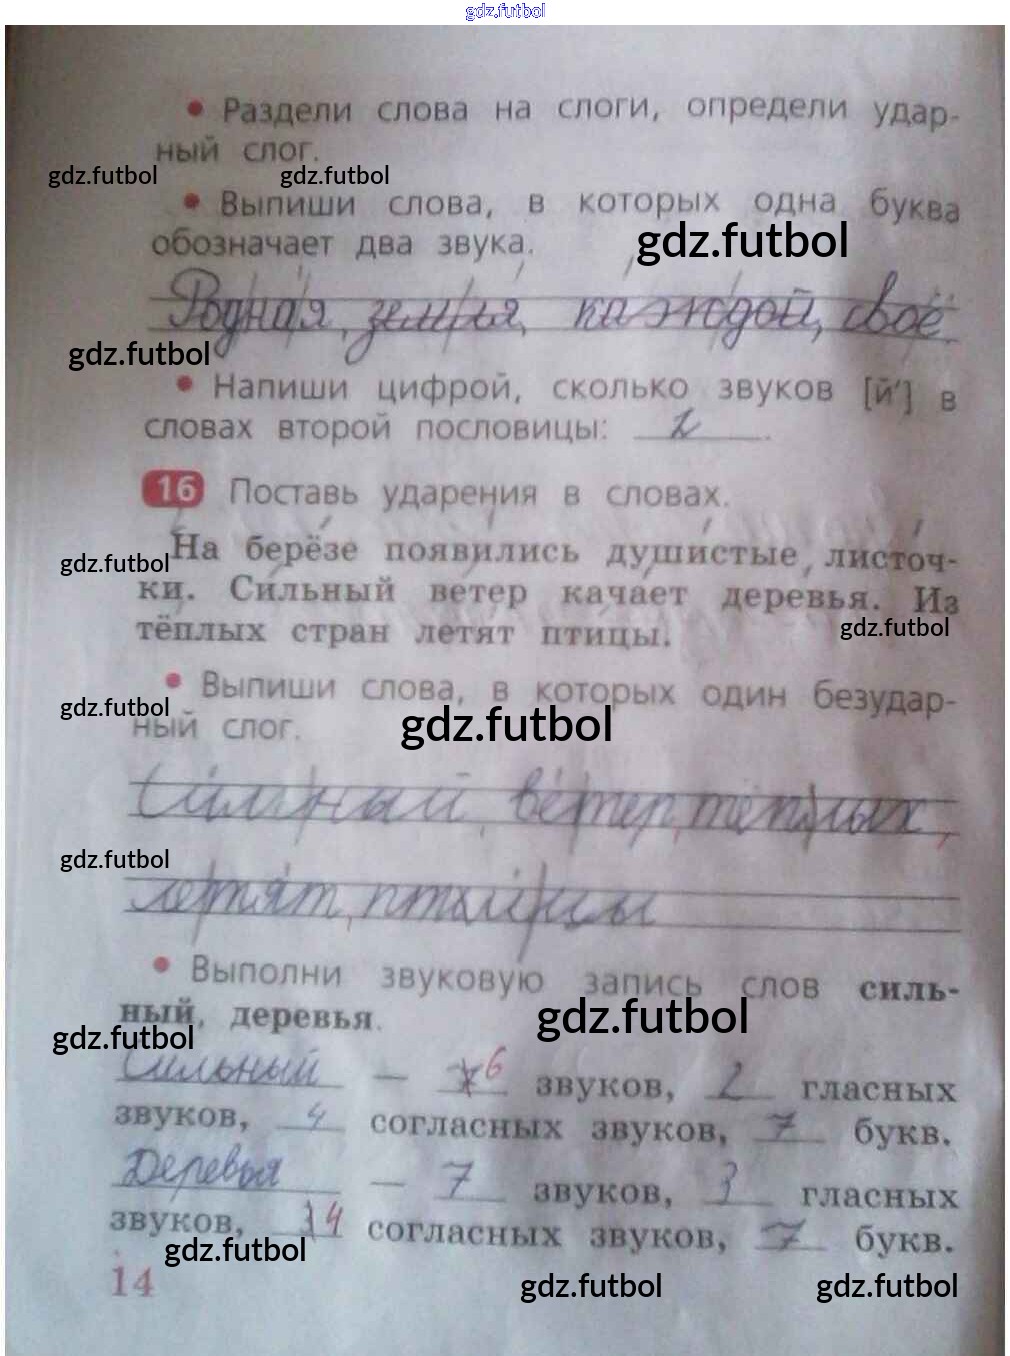 gdz.futbol
• Раздели слова на слоги, определи удар-
ный слог.
gdz.futbol gdz.futbol
• Выпиши слова, в которых одна буква
обозначает два звука.
gdz.futbol
Родная, земля, каждой, своё
gdz.futbol
• Напиши цифрой, сколько звуков [й'] в
словах второй пословицы: 2.
16 Поставь ударения в словах.
На берёзе появились душистые листоч-
gdz.futbol
ки. Сильный ветер качает деревья. Из
тёплых стран летят птицы.
gdz.futbol
• Выпиши слова, в которых один безудар-
gdz.futbol
ный слог.
gdz.futbol
Сильный, ветер, тёплых,
gdz.futbol
летят, птицы
• Выполни звуковую запись слов силь-
ный, деревья.
gdz.futbol
gdz.futbol
Сильный — 6 звуков, 2 гласных
звуков, 4 согласных звуков, 7 букв.
Деревья — 7 звуков, 3 гласных
звуков, 4 согласных звуков, 7 букв.
gdz.futbol
14
gdz.futbol gdz.futbol